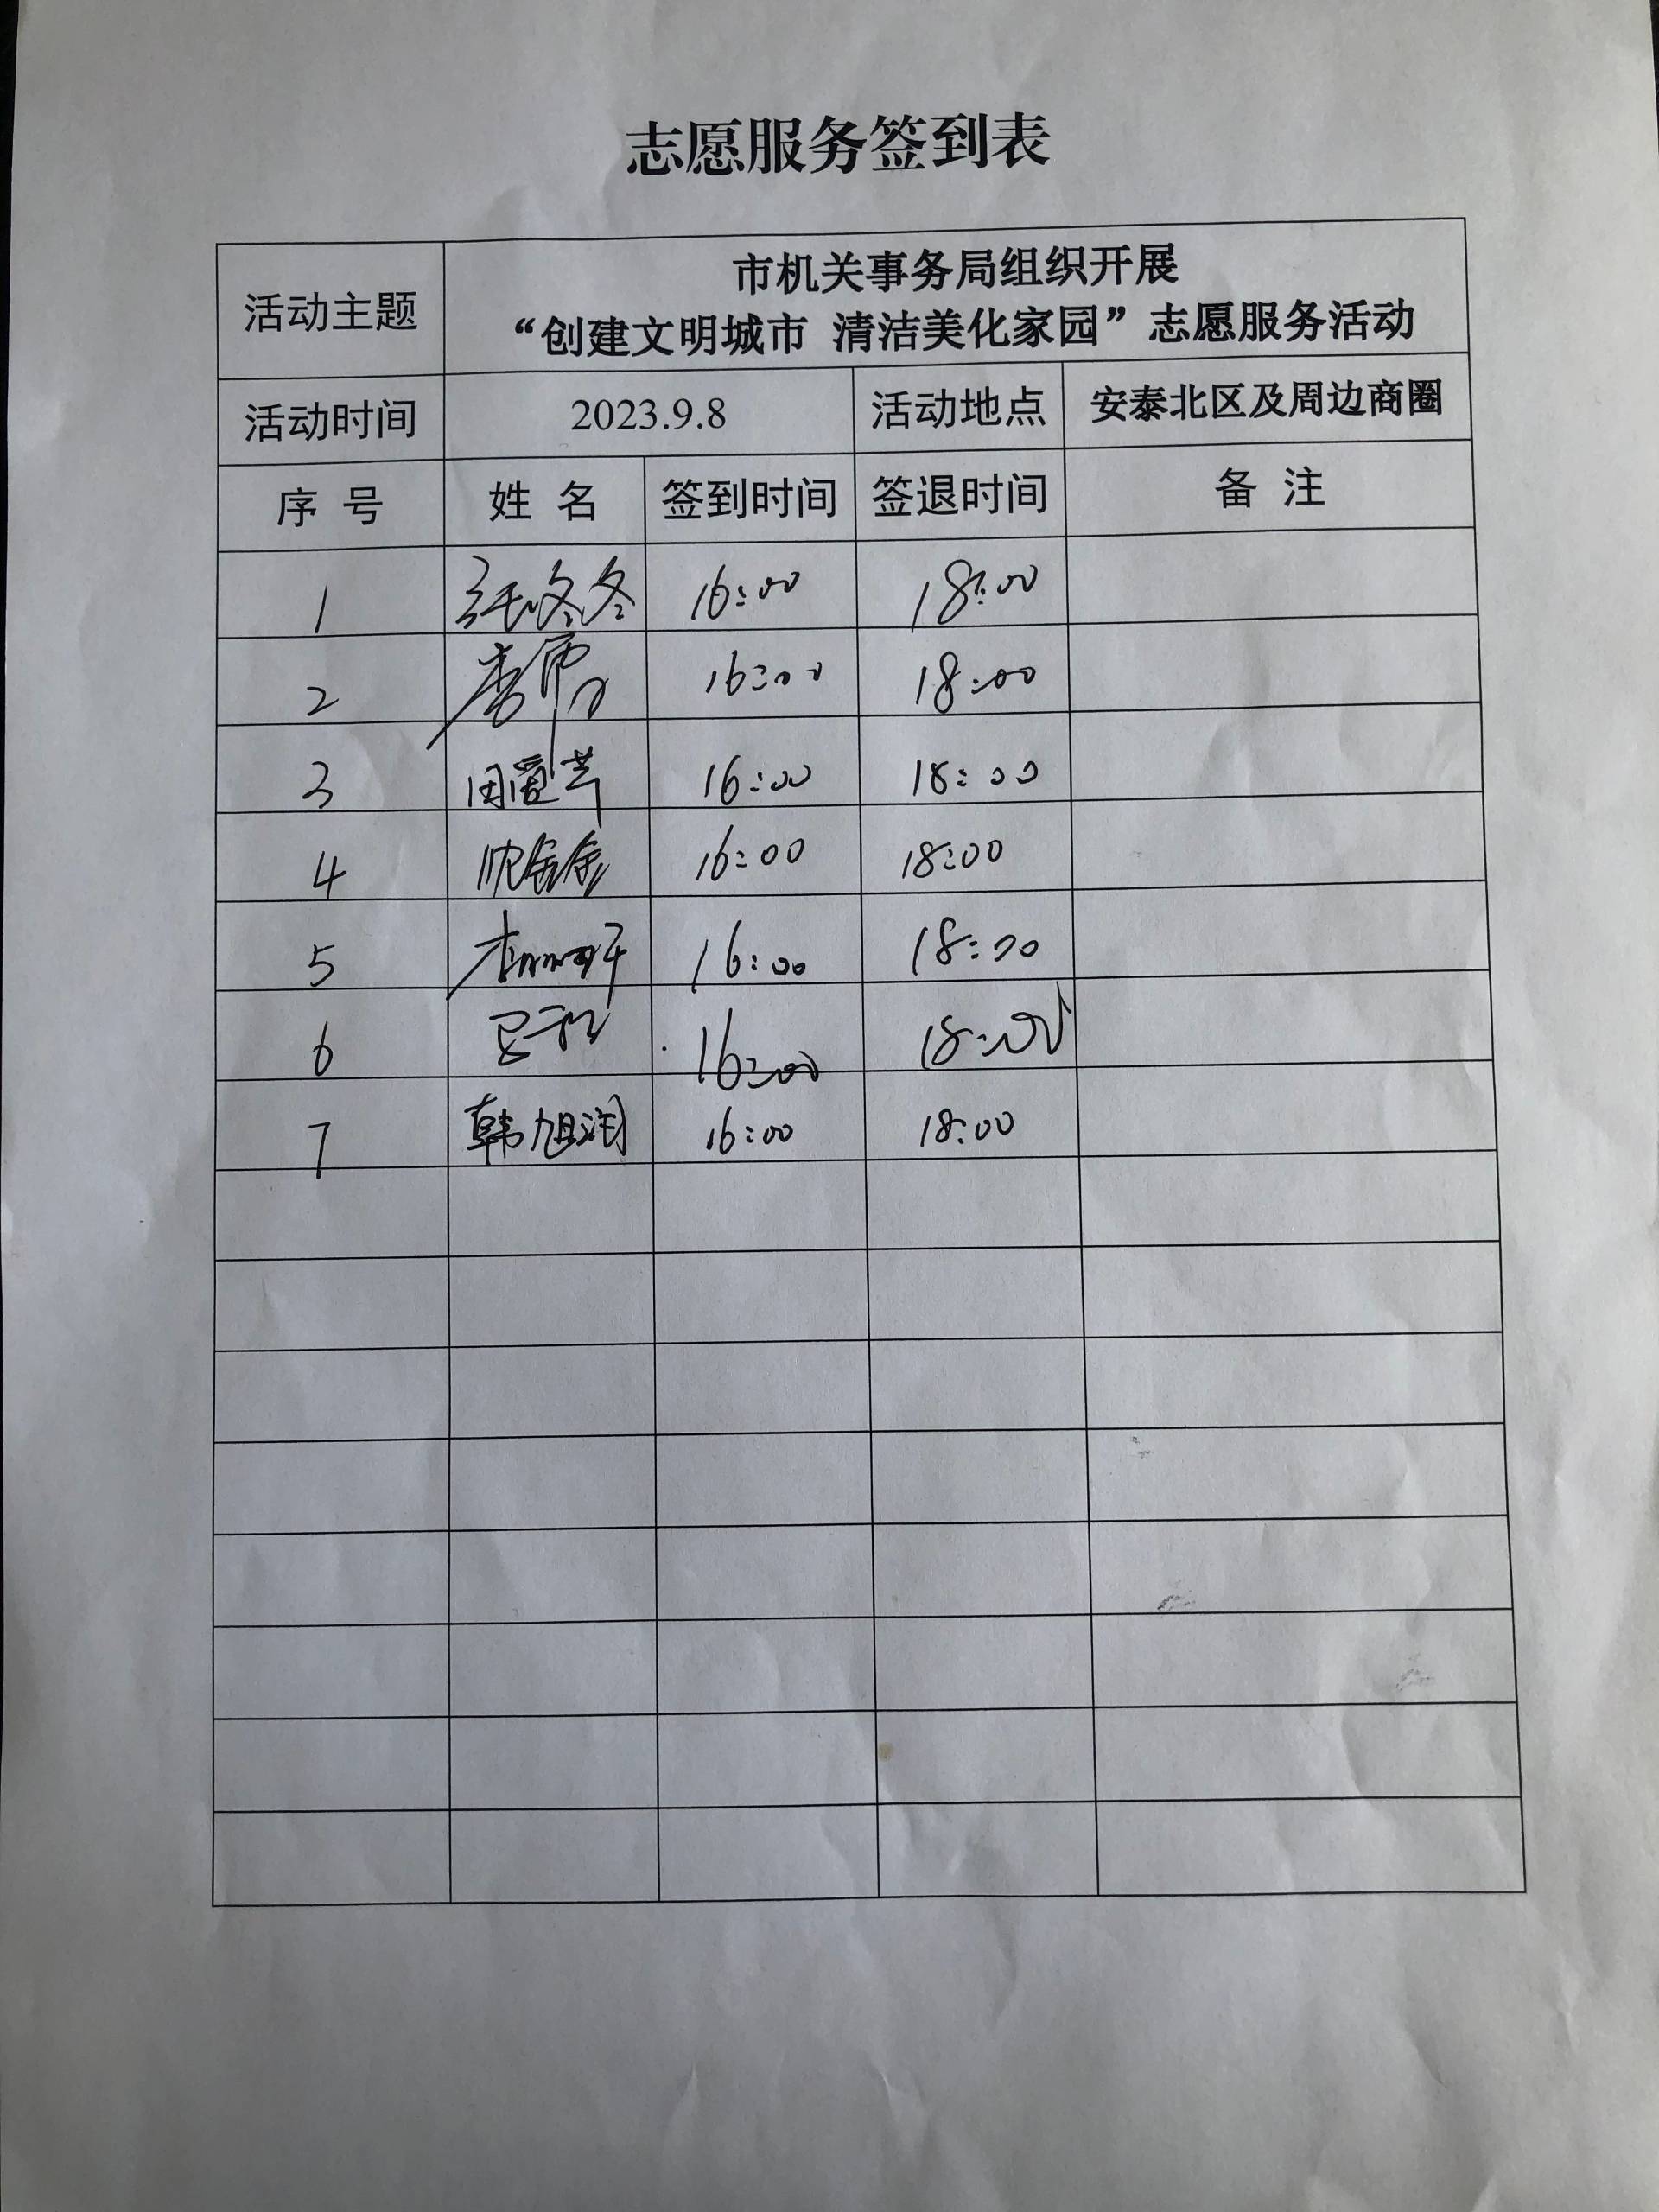 志愿服务签到表
活动主题
市机关事务局组织开展
“创建文明城市 清洁美化家园”志愿服务活动
活动时间 2023.9.8 活动地点 安泰北区及周边商圈
序 号 姓 名 签到时间 签退时间 备 注
1 冬冬 16:00 18:00
2 16:00 18:00
3 16:00 18:00
4 16:00 18:00
5 16:00 18:00
6 16:00 18:00
7 韩旭润 16:00 18:00